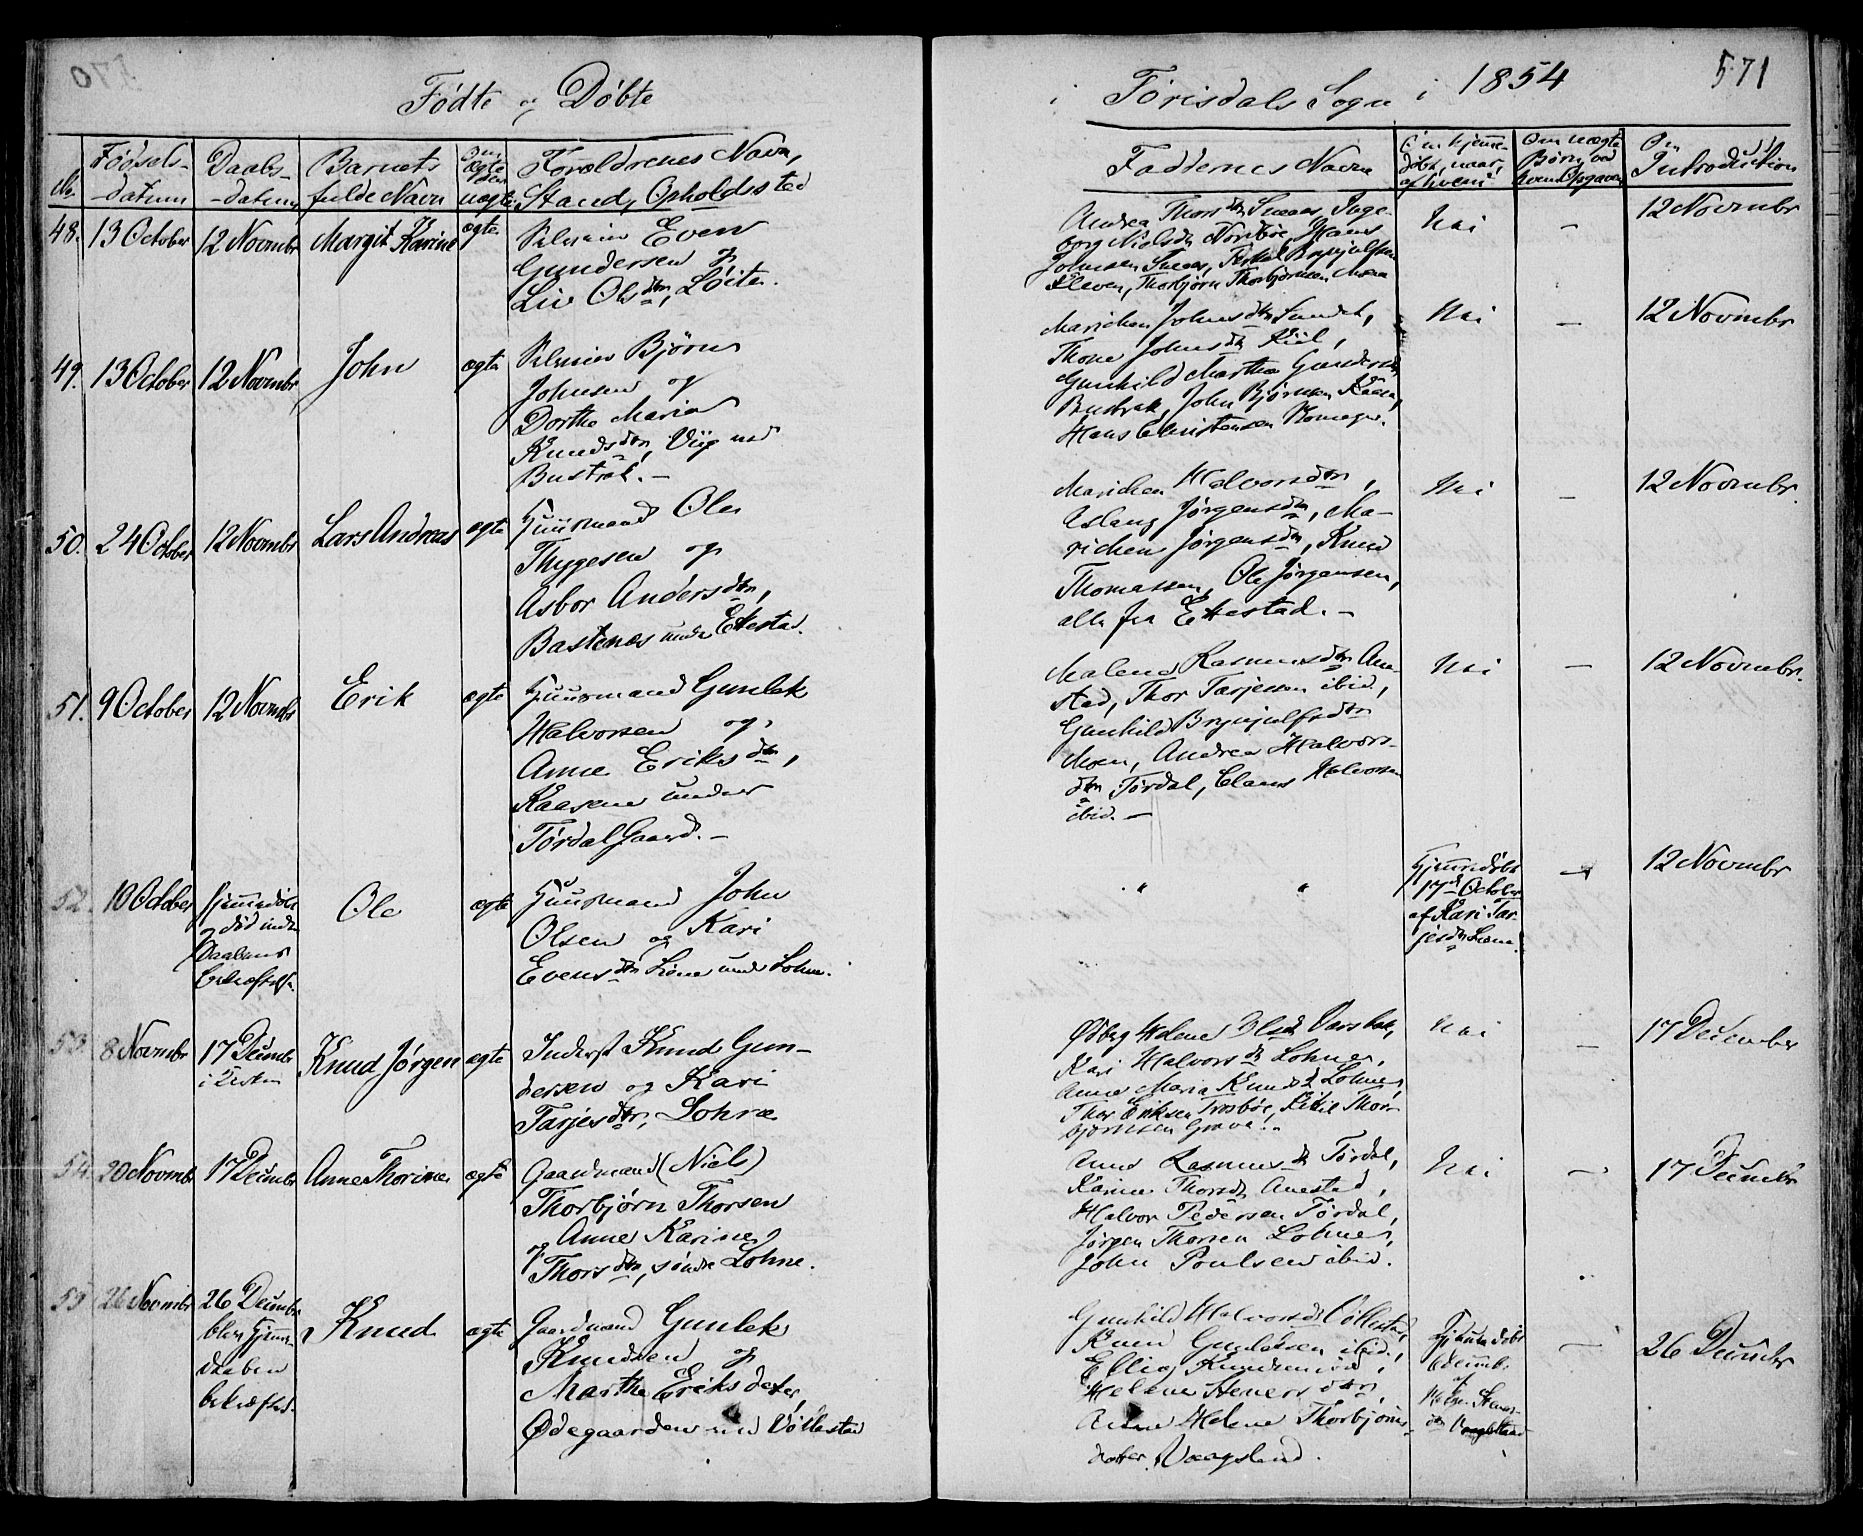 Fødte og Døbte
i Törisdals Sogn i 1854
571
No.
Födsels-
datum
Daabs-
datum
Barnets
fulde Navn
Om
ægte
eller
uægte
Forældrenes Navn,
Stand, Opholdssted
Faddernes Navn
Om hjemme-
døbt, naar,
af hvem
Om uægte
Børn, ved
hvem Opgaven
Om
Introduction
48. 13 October
12 Novembr
Margit Karine
ægte
Selveier Even
Gundersen og
Liv Olsdtr, Löite.
Andrea Thorsdtr Sneaas, Inge-
borg Nielsdtr Nordbøe, Hans
Johnsen Sneaas, Brynjulfsen
Kleven, Thorbjörn Thorbjörnsen Moen
Nei
–
12 Novembr
49. 13 October
12 Novembr
John
ægte
Selveier Björn
Johnsen og
Dorthe Maria
Knudsdtr, Viig ved
Bustrak. –
Marichen Johnsdtr Sundet,
Thone Johnsdtr Kiil,
Gunhild Martha Gundersdtr
Bustrak, John Björnsen Kaasa,
Hans Christensen
Nei
–
12 Novembr
50. 24 October
12 Novembr
Lars Andreas
ægte
Huusmand Ole
Thygesen og
Asbor Andersdtr,
Bastenæs under Ettestad.
Marichen Halvorsdtr,
Aslaug Jörgensdtr, Ma-
richen Jörgensdtr, Knud
Thomassen, Ole Jörgensen,
alle fra Ettestad. –
Nei
–
12 Novembr.
51. 9 October
12 Novembr
Erik
ægte
Huusmand Gunlek
Halvorsen og
Anne Eriksdtr,
Kaasene under
Tördal Gaard. –
Malene Rasmusdtr Ane-
stad, Thor Tarjesen ibid,
Gunhild Brynjulfsdtr
Moen, Andrea Halvors-
dtr Tördal, Claus Halvorsen
ibid. –
Nei
–
12 Novembr.
52. 10 October
hjemmedöbt
död inden
Daabens
bekræftelse
Ole
ægte
Huusmand John
Olsen og Kari
Evensdtr Liene under Lohne.
" "
Hjemmedöbt
17de October
af Kari Tar-
jesdtr Liene.
–
12 Novembr
53. 8 Novembr
17 Decembr
i Kirken
Knud Jörgen
ægte
Inderst Knud Gun-
dersen og Kari
Tarjesdtr, Lohne
Helene Olsdtr
Kari Halvorsdtr Lohne,
Anne Maria Knudsdtr Lohne,
Thor Eriksen Trosböe, Kittil Thor-
björnsen Grave. –
Nei
–
17 December
54. 20 Novembr
17 Decembr
Anne Thorine
ægte
Gaardmand (Niels)
Thorbjörn Thorsen
og Anne Karine
Thorsdtr, söndre Lohne.
Anne Rasmusdtr Tördal,
Karine Thorsdtr Anestad,
Halvor Pedersen Tördal,
Jörgen Thorsen Lohne,
John Poulsen ibid.
Nei
–
17 Decembr
55 26 Novembr
26 Decembr
blev Hjemme-
daaben
bekræftet.
Knud
ægte
Gaardmand Gunlek
Knudsen og
Marthe Eriksdatter,
Ødegaarden ved Völlestad
Gunhild Halvorsdtr Völlestad,
Knud Gunleksen ibid.,
Ellig Knudsen ibid,
Helene Steners dtr,
Anne Helene Thorbjörns-
datter, Vaagsland.
Hjemmedöbt
Decembr
af
Helene Steners-
dtr Vaagsland
–
26 Decembr